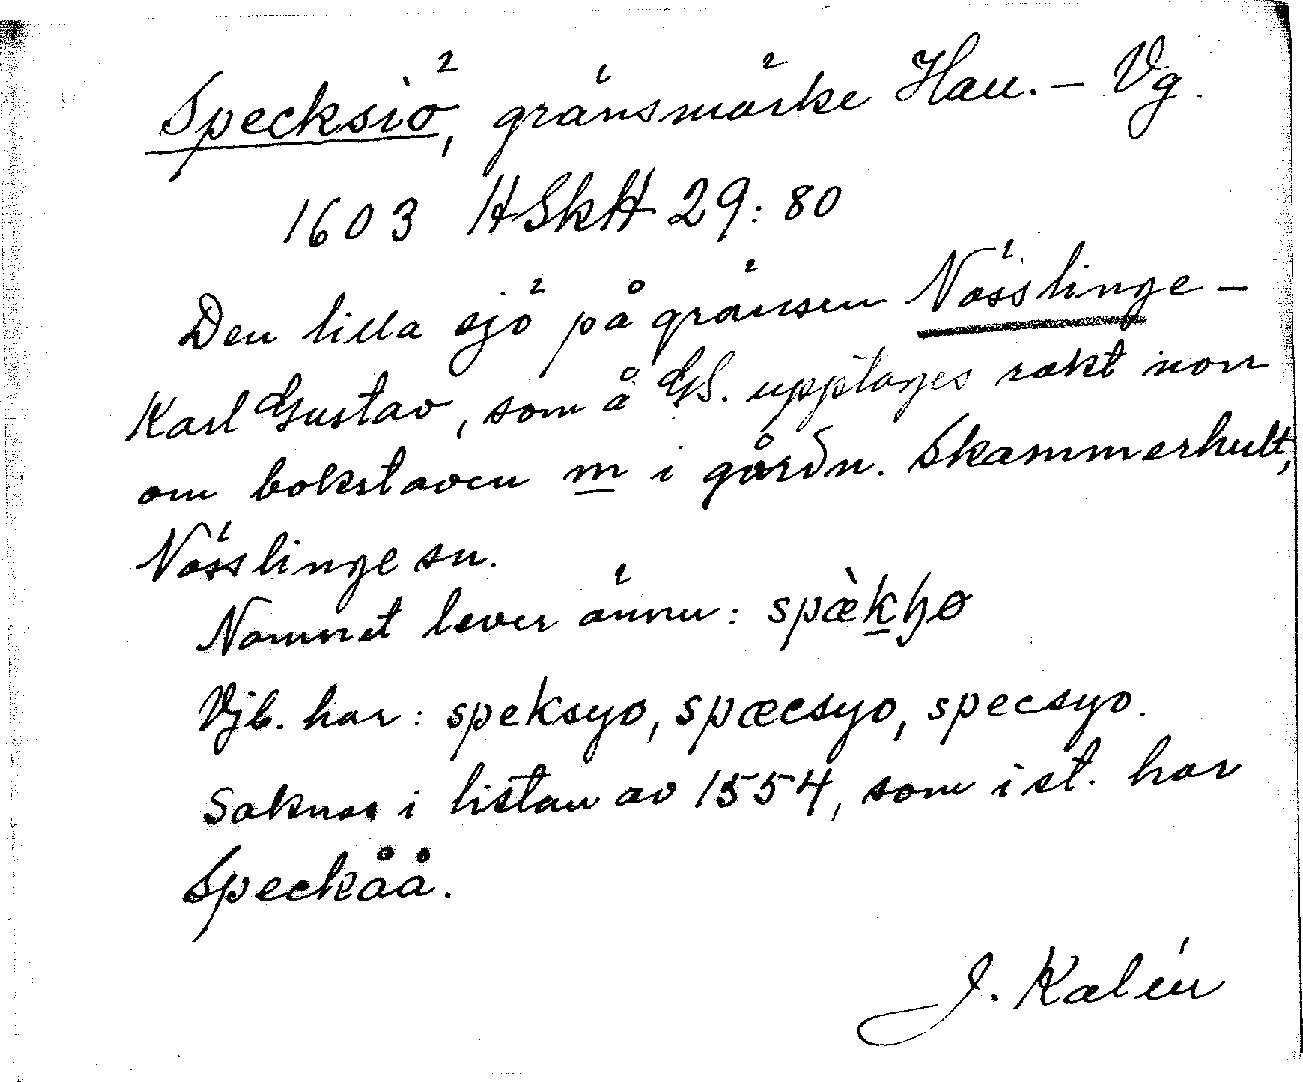 Specksiö, gränsmärke Hall. – Vg.
1603 HSkH 29: 80
Den lilla sjö på gränsen Nösslinge –
Karl Gustav, som å GS. upptages rakt norr
om bokstaven m i gårdn. Skammerhult,
Nösslinge sn.
Namnet lever ännu: spæ̀kꜧø
Vjb. har: speksyo, spæcsyo, specsyo.
Saknas i listan av 1554, som i st. har
Speckåå.
J. Kalén